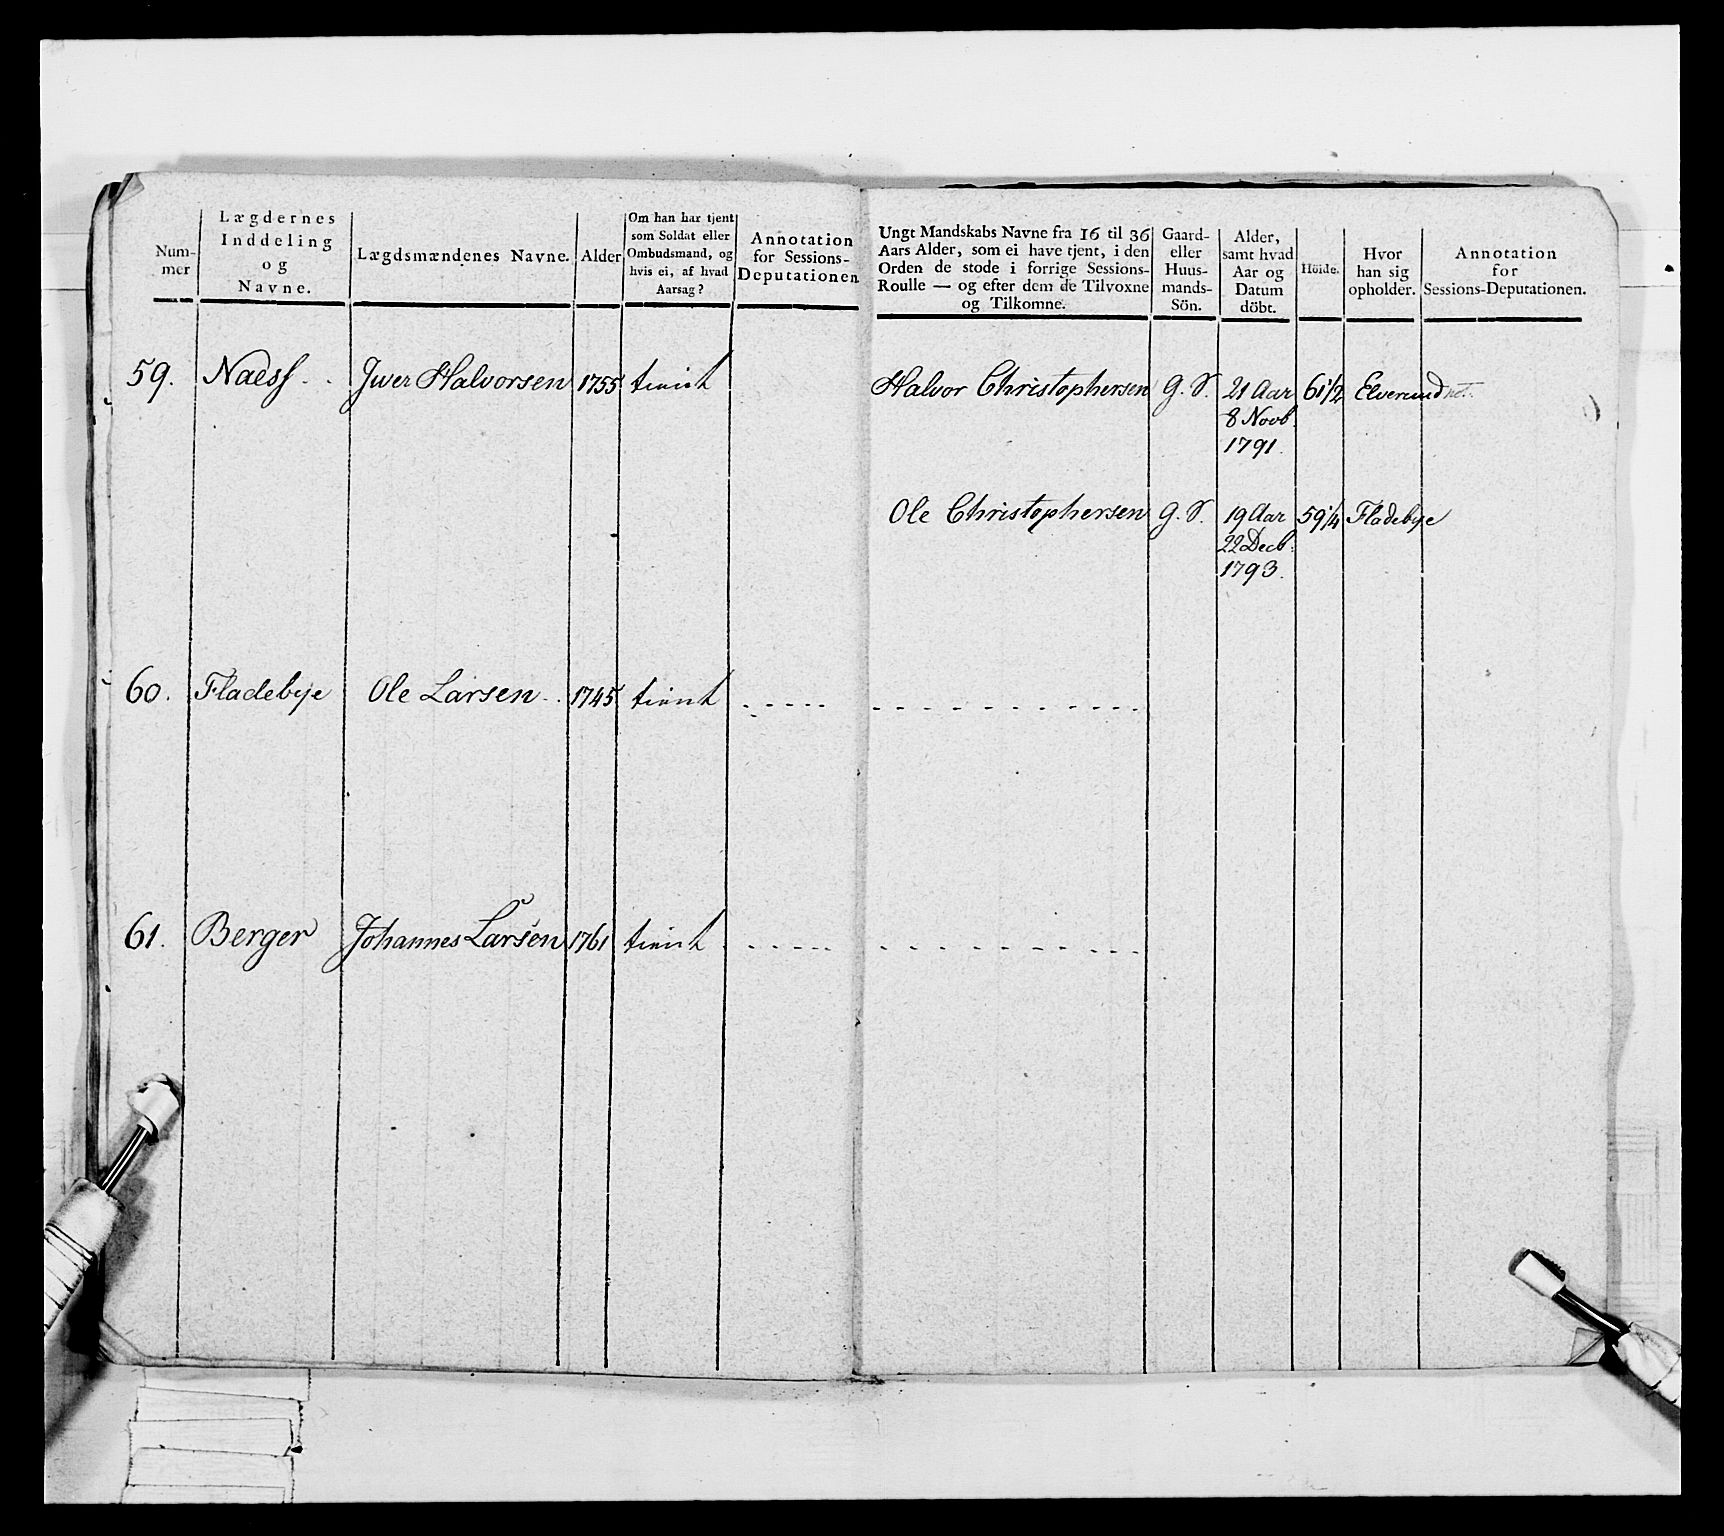 Num-
mer
Lægdernes
Inddeling
og
Navne.
Lægdsmændenes Navne.
Alder
Om han har tjent
som Soldat eller
Ombudsmand, og
hvis ei, af hvad
Aarsag?
Annotation
for Sessions-
Deputationen
59. Naess Jwer Halvorsen 1755 tient
60. Fladebye Ole Larsen 1745 tient
61. Berger Johannes Larsen 1761 tient
Ungt Mandskabs Navne fra 16 til 36
Aars Alder, som ei have tjent, i den
Orden de stode i forrige Sessions-
Roulle — og efter dem de Tilvoxne
og Tilkomne.
Gaard-
eller
Huus-
mands-
Sön.
Alder,
samt hvad
Aar og
Datum
döbt.
Höide.
Hvor
han sig
opholder.
Annotation
for
Sessions-Deputationen.
Halvor Christophersen G. S. 21 Aar 61 1/2 Elverum
8 Novb.
1791.
Ole Christophersen G. S. 19 Aar 59 1/4 Fladebye
22 Decb:
1793.